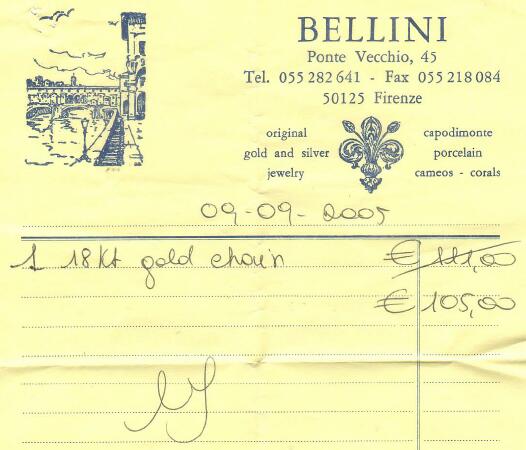 BELLINI
Ponte Vecchio, 45
Tel. 055 282 641 - Fax 055 218 084
50125 Firenze
original
gold and silver
jewelry
capodimonte
porcelain
cameos - corals
09-09-2005
1 18Kt gold chain €111,00
€105,00